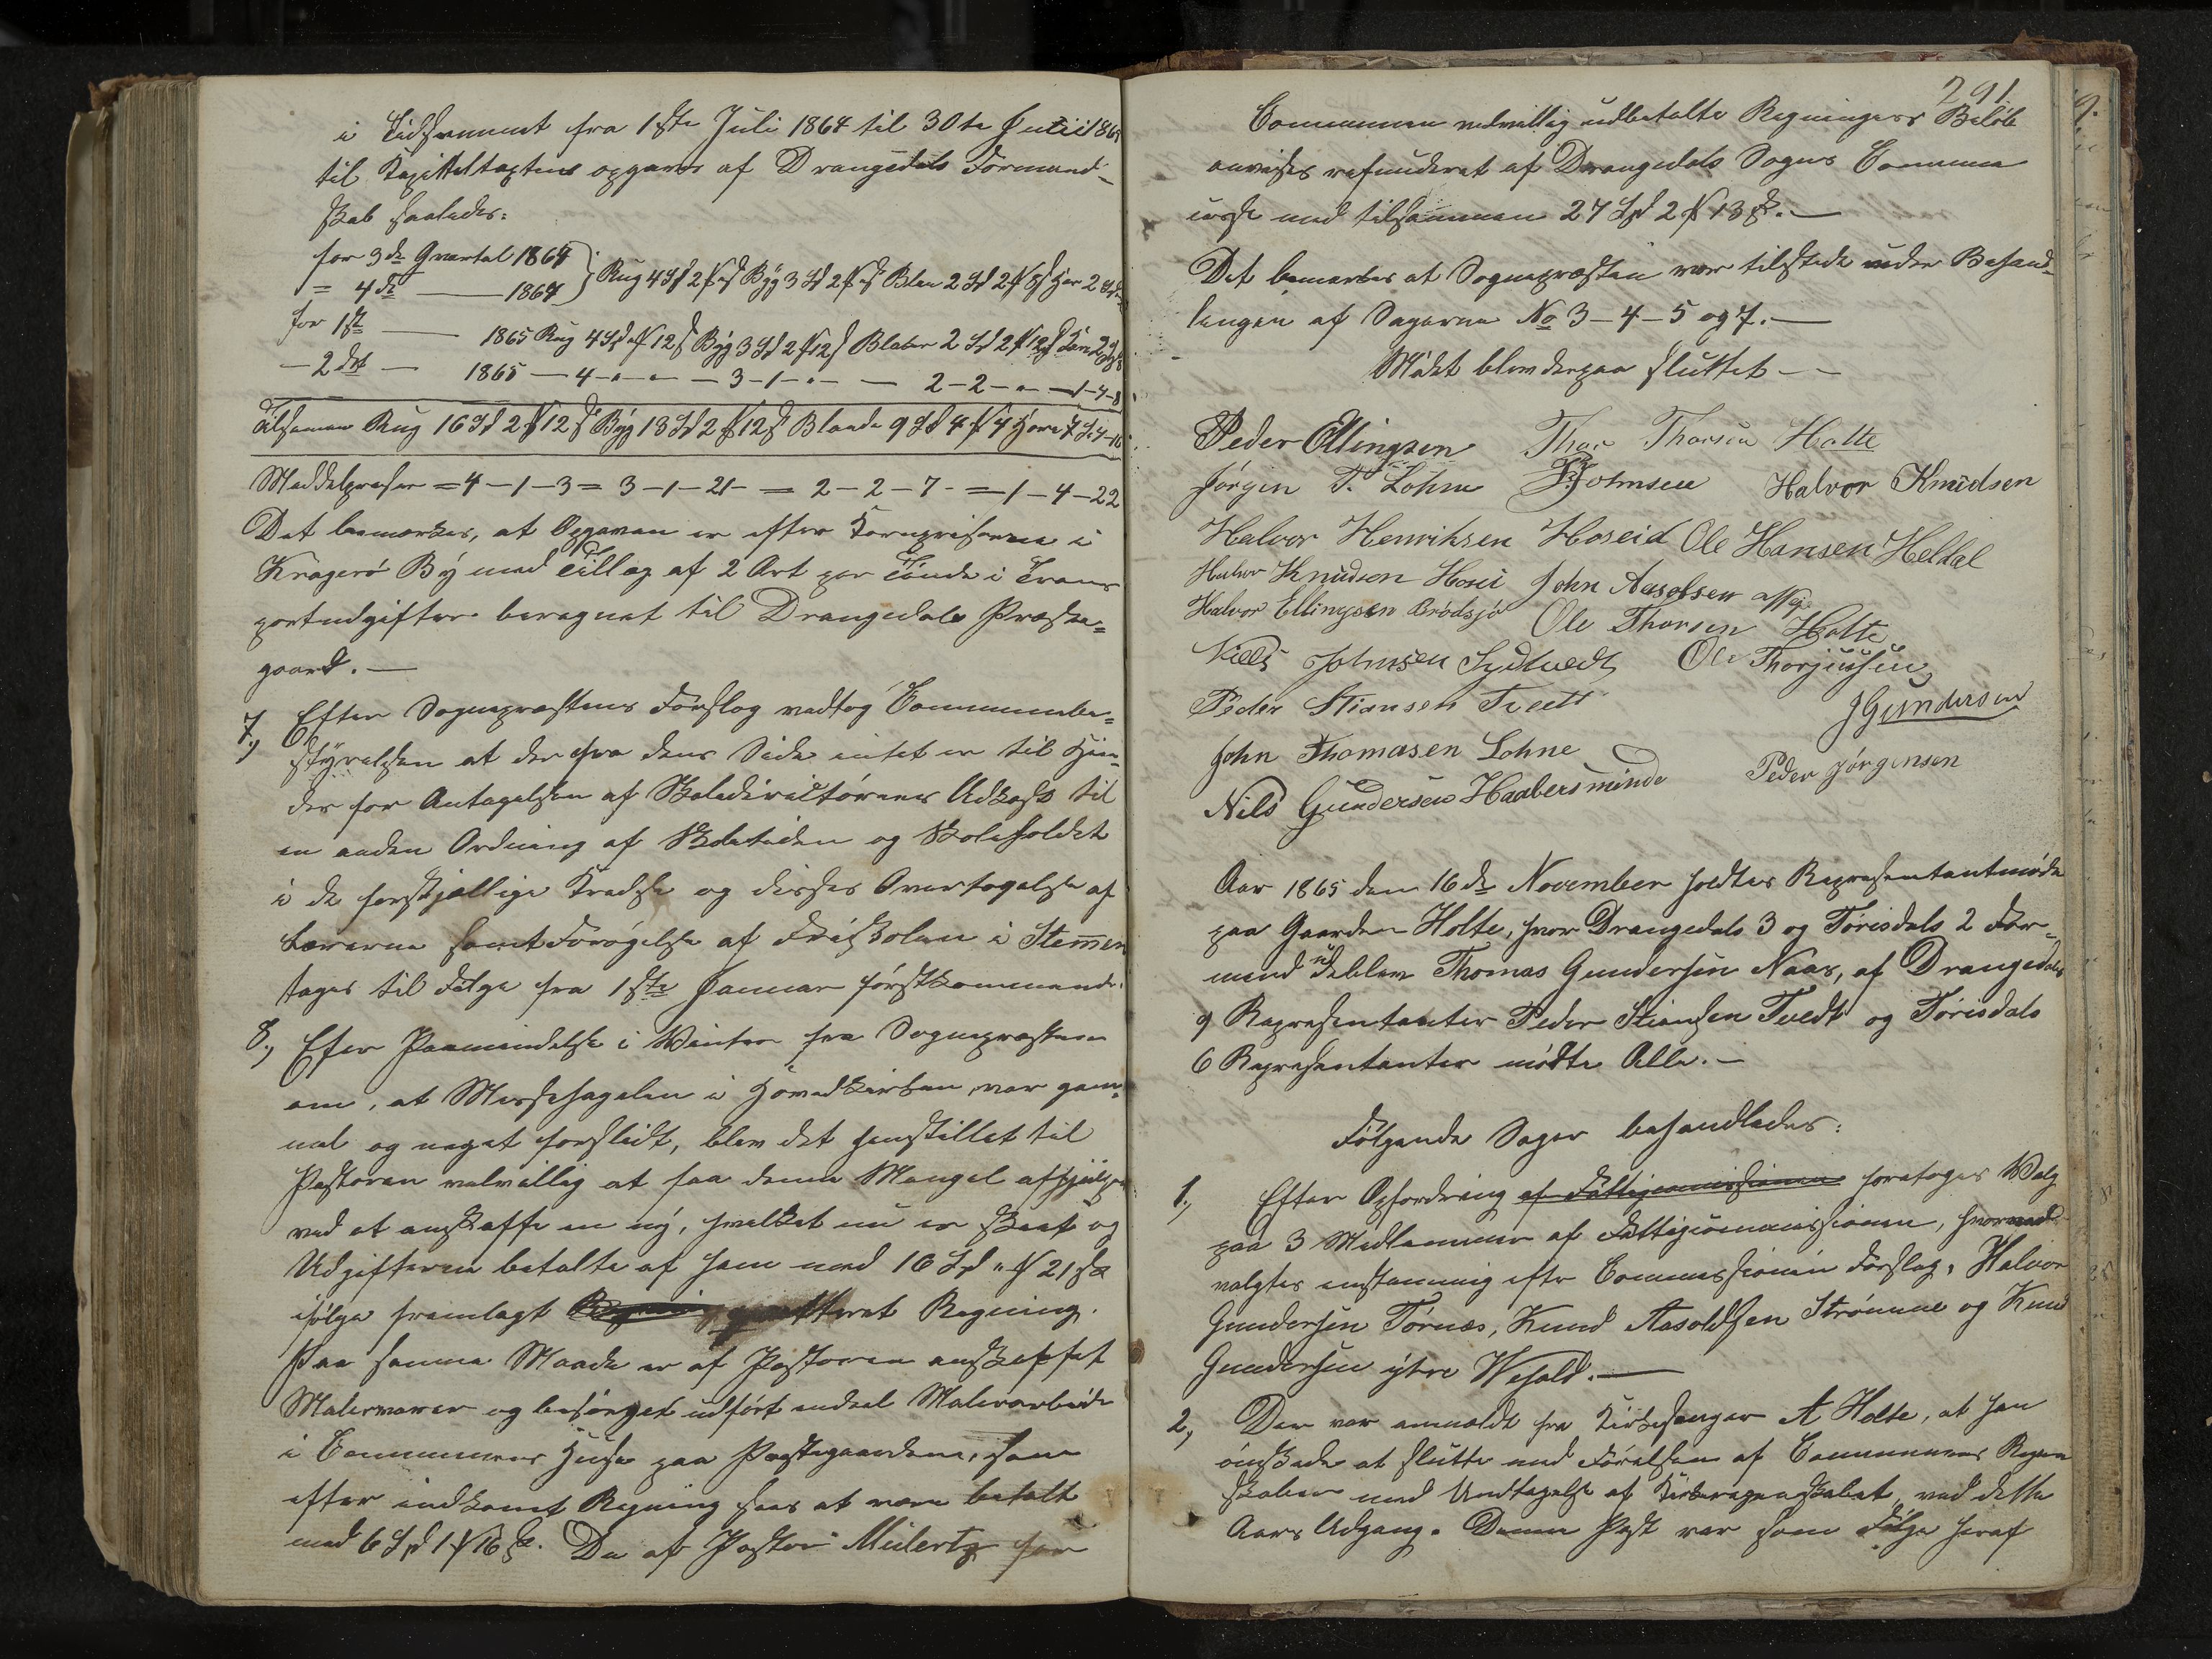 i Tidsrummet fra 1ste Juli 1864 til 30te Juni 1865
til Kapitelstaxtens opgaves af Drangedals Formand-
skab saaledes:
for 3die Qvartal 1864
= 4de — 1864 } Rug 4 Spd 2 Byg 3 Spd 2 Blan 2 Spd 2
for 1ste — 1865 Rug 4 Spd 12 Byg 3 Spd 2 12 Blande 2 Spd 2 12
— 2det — 1865 — 4 - " - " — 3 - 1 - " - — 2 - 2 - " - — 1-4-8
Tilsamen Rug 16 Spd 2 12 Byg 13 Spd 2 12 Blande 9 Spd 4 4 Havre 7
Meddelpriser = 4 - 1 - 3 = 3 - 1 - 21 - = 2 - 2 - 7 - = 1 - 4 - 22
Det bemærkes, at Opgaven er efter Kornpriserne i
Kragerø By med Tillæg af 2 Ort per Tønde i Trans
portudgifter beregnet til Drangedals Præste=
gaard. —
7.) Efter Sognepræstens Forslag vedtog Communebe=
styrelsen at der fra dens Side intet er til Hin-
der for Antagelsen af Skoledirectørens Udkast til
en anden Ordning af Skoletiden og Skoleholdet
i de forskjellige Kredse og disses Overtagelse af
Lærerne samt Forøgelse af Friskolen i Stemmen
tages til Følge fra 1ste Januar førstkommende.
8.) Efter Paamindelse i Vinter fra Sognepræsten
om, at Messehagelen i Hovedkirken var gam-
mel og meget forslidt, blev det henstillet til
Pastoren velvillig at faa denne Mangel afhjulpen
ved at anskaffe en ny, hvilket nu er skeet og
Udgifterne betalte af ham med 16 Spd " 21 sk
ifølge fremlagt qvitteret Regning.
Paa samme Maade er af Pastoren anskaffet
Malervarer og besørget udført endeel Malerarbeide
i Communens Huse paa Præstegaardene, som
efter indkomt Regning sees at være betalt
med 6 Spd 1 16 sk. De af Pastor Meilertz for
291
Communen velvillig udbetalte Regningers Beløb
anvises refunderet af Drangedals Sogns Commune
casse med tilsammen 27 Spd 2 13 sk. —
Det bemærkes at Sognepræsten var tilstede under Behand-
lingen af Sagerne No 3-4-5 og 7. —
Mødet blev derpaa sluttet —
Peder Ellingsen Thor Thorsen Holte
Jørgen T. Lohne Halvor Knudsen
Halvor Henriksen Hoseid Ole Hansen Heldal
Halvor Knudsen Hosei John Aasolsen
Halvor Ellingsen Brødsjø Ole Thorsen Holte
Niels Johnsen Sydtvedt Ole Thorjussen
Peder Stiansen Tveit JGundersen
John Thomasen Lohne
Nils Gundersen Haabersminde Peder Jørgensen
Aar 1865 den 16de November holdtes Representantmøde
paa Gaarden Holte, hvor Drangedals 3 og Tørisdals 2 For-
mænd udeblev Thomas Gundersen Naas, af Drangedals
9 Representanter Peder Stiansen Tvedt og Tørisdals
6 Representanter mødte Alle. —
Følgende Sager behandledes:
1.) Efter Opfordring af Fattigcommissionen foretoges Valg
paa 3 Medlemmer af Fattigcommissionen, hvorved
valgtes enstemmig efter Commissionen Forslag, Halvor
Gundersen Tørnes, Knud Aasoldsen Strømme og Knud
Gundersen ytre Wefald. —
2.) Der var anmeldt fra Kirkesanger A Holte, at han
ønskede at slutte med Førelsen af Communens Regn
skaber med Undtagelse af Kirkeregnskabet, ved dette
Aars Udgang. Denne Post var som Følge heraf